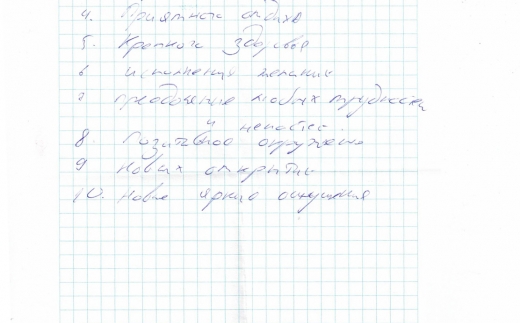 4. Приятного отдыха
5. Крепкого здоровья
6 исполнения желаний
7 преодоление любых трудностей
и
8. Позитивное окружение
9 Новых открытий
10. Новые яркие ощущения